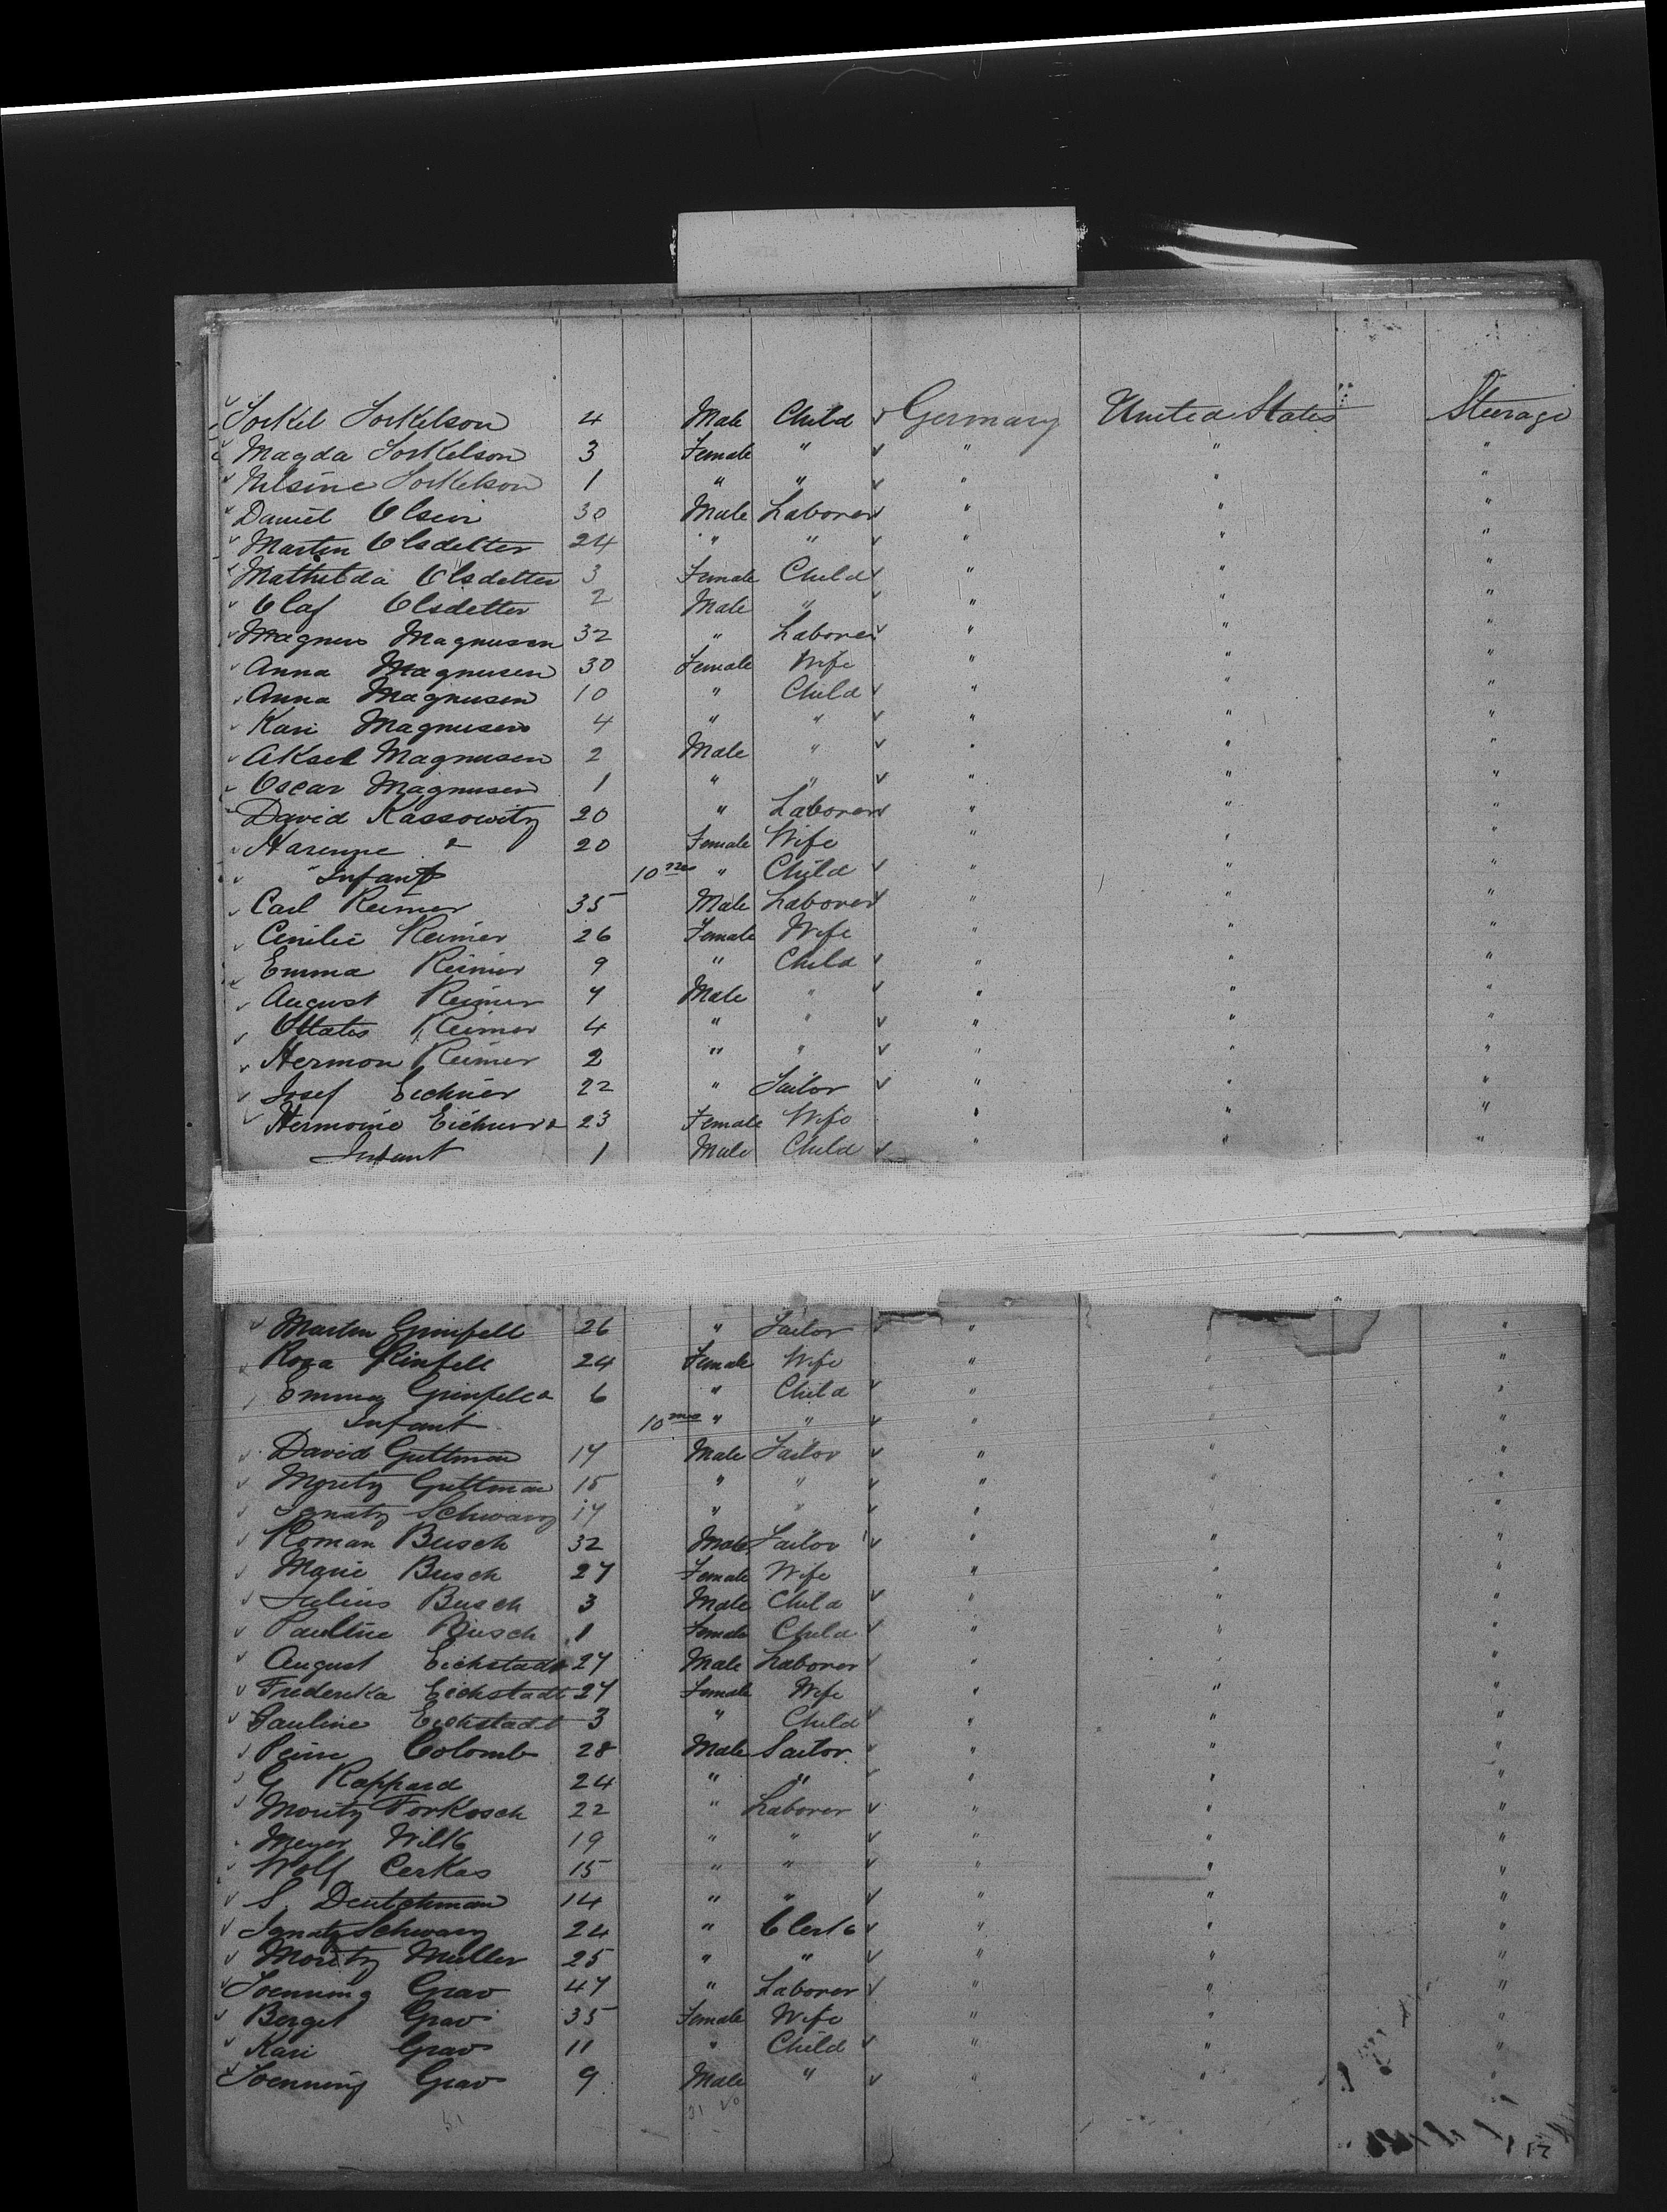 Torkel Torkelson 4 Male Child √ Germany United States Steerage
Magda Torkelson 3 Female " √ " " "
Nilsine Torkelson 1 " " √ " " "
Daniel Olsen 30 Male Laborer √ " " "
Martin Olsdetter 24 " " √ " " "
Mathilda Olsdetter 3 Female Child √ " " "
Olaf Olsdetter 2 Male " √ " " "
Magnus Magnusen 32 " Laborer √ " " "
Anna Magnusen 30 Female Wife " " "
Anna Magnusen 10 " Child √ " " "
Kari Magnusen 4 " " √ " " "
Aksel Magnusen 2 Male " √ " " "
Oscar Magnusen 1 " " √ " " "
David Kassowitz 20 " Laborer √ " " "
& 20 Female Wife " " "
Infant 10 mos " Child √ " " "
Carl Reimer 35 Male Laborer √ " " "
Reimer 26 Female Wife " " "
Emma Reimer 9 " Child √ " " "
August Reimer 7 Male " √ " " "
Reimer 4 " " √ " " "
Hermon Reimer 2 " " √ " " "
Josef Eichner 22 " Tailor √ " " "
Hermoine Eichner & 23 Female Wife " " "
Infant 1 Male Child √ " " "
Martin Grinfell 26 " Tailor √ " "
Roza Grinfell 24 Female Wife " " "
Emma Grinfell & 6 " Child √ " " "
Infant 10 mos " " √ " " "
David Guttman 17 Male Tailor √ " " "
Moritz Guttman 15 " " √ " " "
Ignatz Schwarz 17 " " √ " " "
Roman Busch 32 Male Tailor √ " " "
Marie Busch 27 Female Wife " " "
Julius Busch 3 Male Child √ " " "
Pauline Busch 1 Female Child √ " " "
August Eichstadt 27 Male Laborer √ " " "
Frederika Eichstadt 27 Female Wife " " "
Pauline Eichstadt 3 " Child √ " " "
Colomb 28 Male Sailor √ " " "
G Rappard 24 " " √ " " "
Moritz Forkosch 22 " Laborer √ " " "
Meyer Wilk 19 " " √ " " "
Wolf Cerkas 15 " " √ " " "
S. Deutchman 14 " " √ " " "
Ignatz Schwarz 24 " Clerk √ " " "
Moritz Muller 25 " " √ " " "
Toenning Grav 47 " Laborer √ " " "
Berget Grav 35 Female Wife " " "
Kari Grav 11 " Child √ " " "
Toenning Grav 9 Male " √ " " "
51 31 20